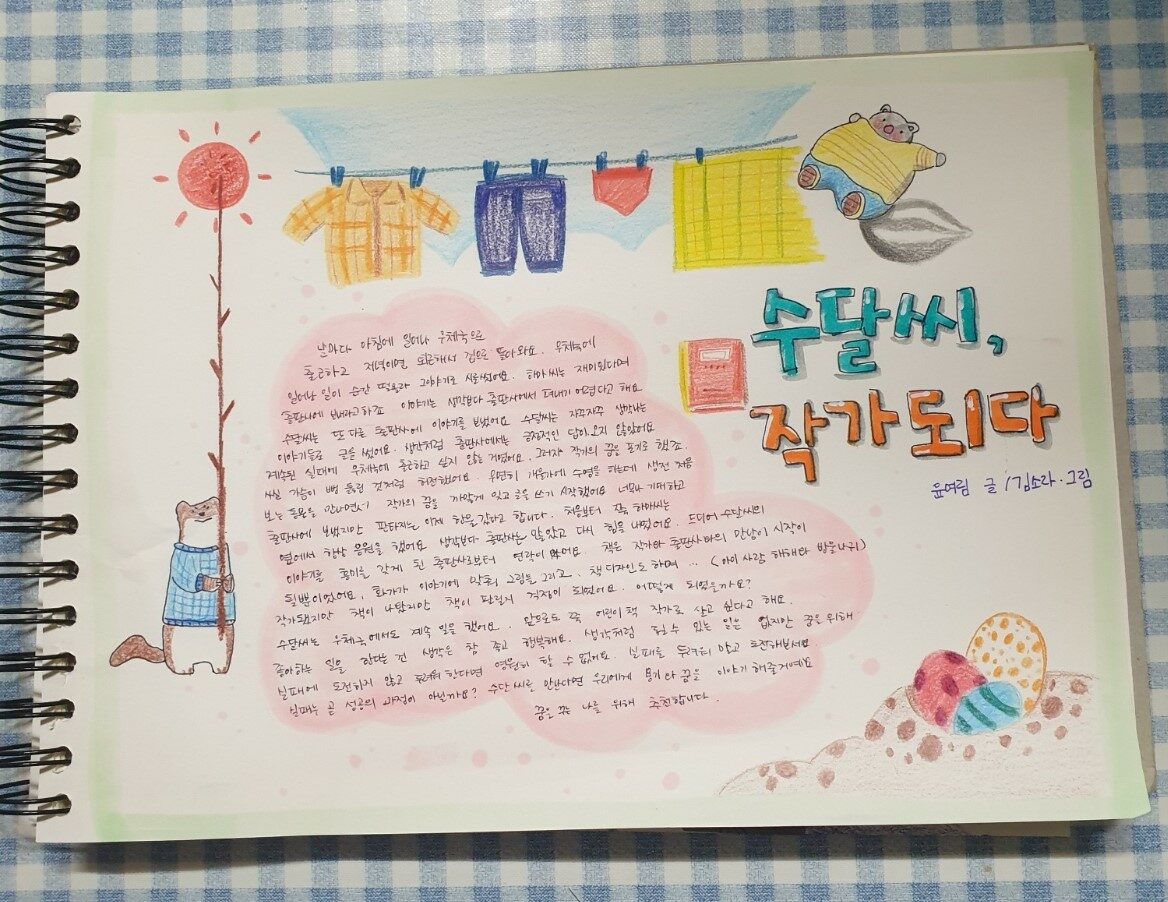 수달씨,
작가되다
윤여림 글/김소라·그림
날마다 아침에 일어나 우체국으로
출근하고 저녁이면 퇴근해서 집으로 돌아와요. 우체국에
일어난 일이 순간 떠올라 이야기로 시로 썼어요. 하마씨는 재미있다며
출판사에 보내라고 하죠 이야기는 생각보다 출판사에서 펴내기 어렵다고 해요
수달씨는 또 다른 출판사에 이야기를 보냈어요 수달씨는 자꾸자꾸 생각나는
이야기들로 글을 썼어요. 생각처럼 출판사에서는 긍정적인 답이 오지 않았어요
계속된 실패에 우체국에 출근하고 싶지 않는 거였어요. 그러자 작가의 꿈을 포기로 했죠.
사실 가슴이 뻥 뚫린 것처럼 허전했어요. 우연히 개울가에 수영을 하는데 생전 처음
보는 동물을 만나면서 작가의 꿈을 까맣게 잊고 글을 쓰기 시작했어요 너무나 기뻐하고
출판사에 보냈지만 판타지는 이제 한물 갔다고 합니다. 처음부터 쭉 하마씨는
옆에서 항상 응원을 했어요 생각보다 출판사는 많았고 다시 힘을 내었어요. 드디어 수달씨의
이야기를 흥미를 갖게 된 출판사로부터 연락이 왔어요. 책은 작가와 출판사와의 만남이 시작이
될뿐이었어요. 화가가 이야기에 맞춰 그림을 그리고. 책 디자인도 하며 .. (
작가됐지만 책이 나왔지만 책이 팔릴지 걱정이 되었어요. 어떻게 되었을까요?
수달씨는 우체국에서도 계속 일을 했어요. 앞으로도 쭉 어린이책 작가로 살고 싶다고 해요.
좋아하는 일을 한다는 건 생각은 참 좋고 행복해요. 생각처럼 될수 있는 일은 없지만 꿈을 위해
실패에 도전하지 않고 한다면 영원히 할 수 없겠죠. 실패를 두려워 말고 도전해보세요
실패는 곧 성공의 과정이 아닐까요? 수달씨를 만난다면 우리에게 용기와 꿈을 이야기 해줄거예요
꿈을 쫓는 나를 위해 추천합니다.